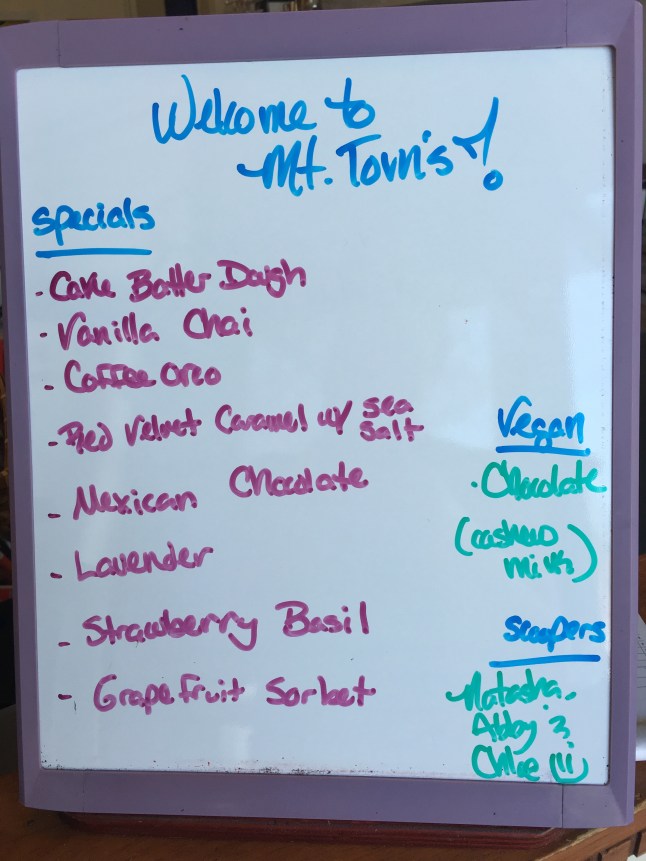 Welcome to
Mt. Tom's!
Specials
- Cake Batter Dough
- Vanilla Chai
- Coffee Oreo
- Red Velvet Caramel w/ sea salt
- Mexican Chocolate
- Lavender
- Strawberry Basil
- Grapefruit Sorbet
Vegan
- Chocolate
(cashew
milk)
Scoopers
Natasha,
Abby &
Chloe